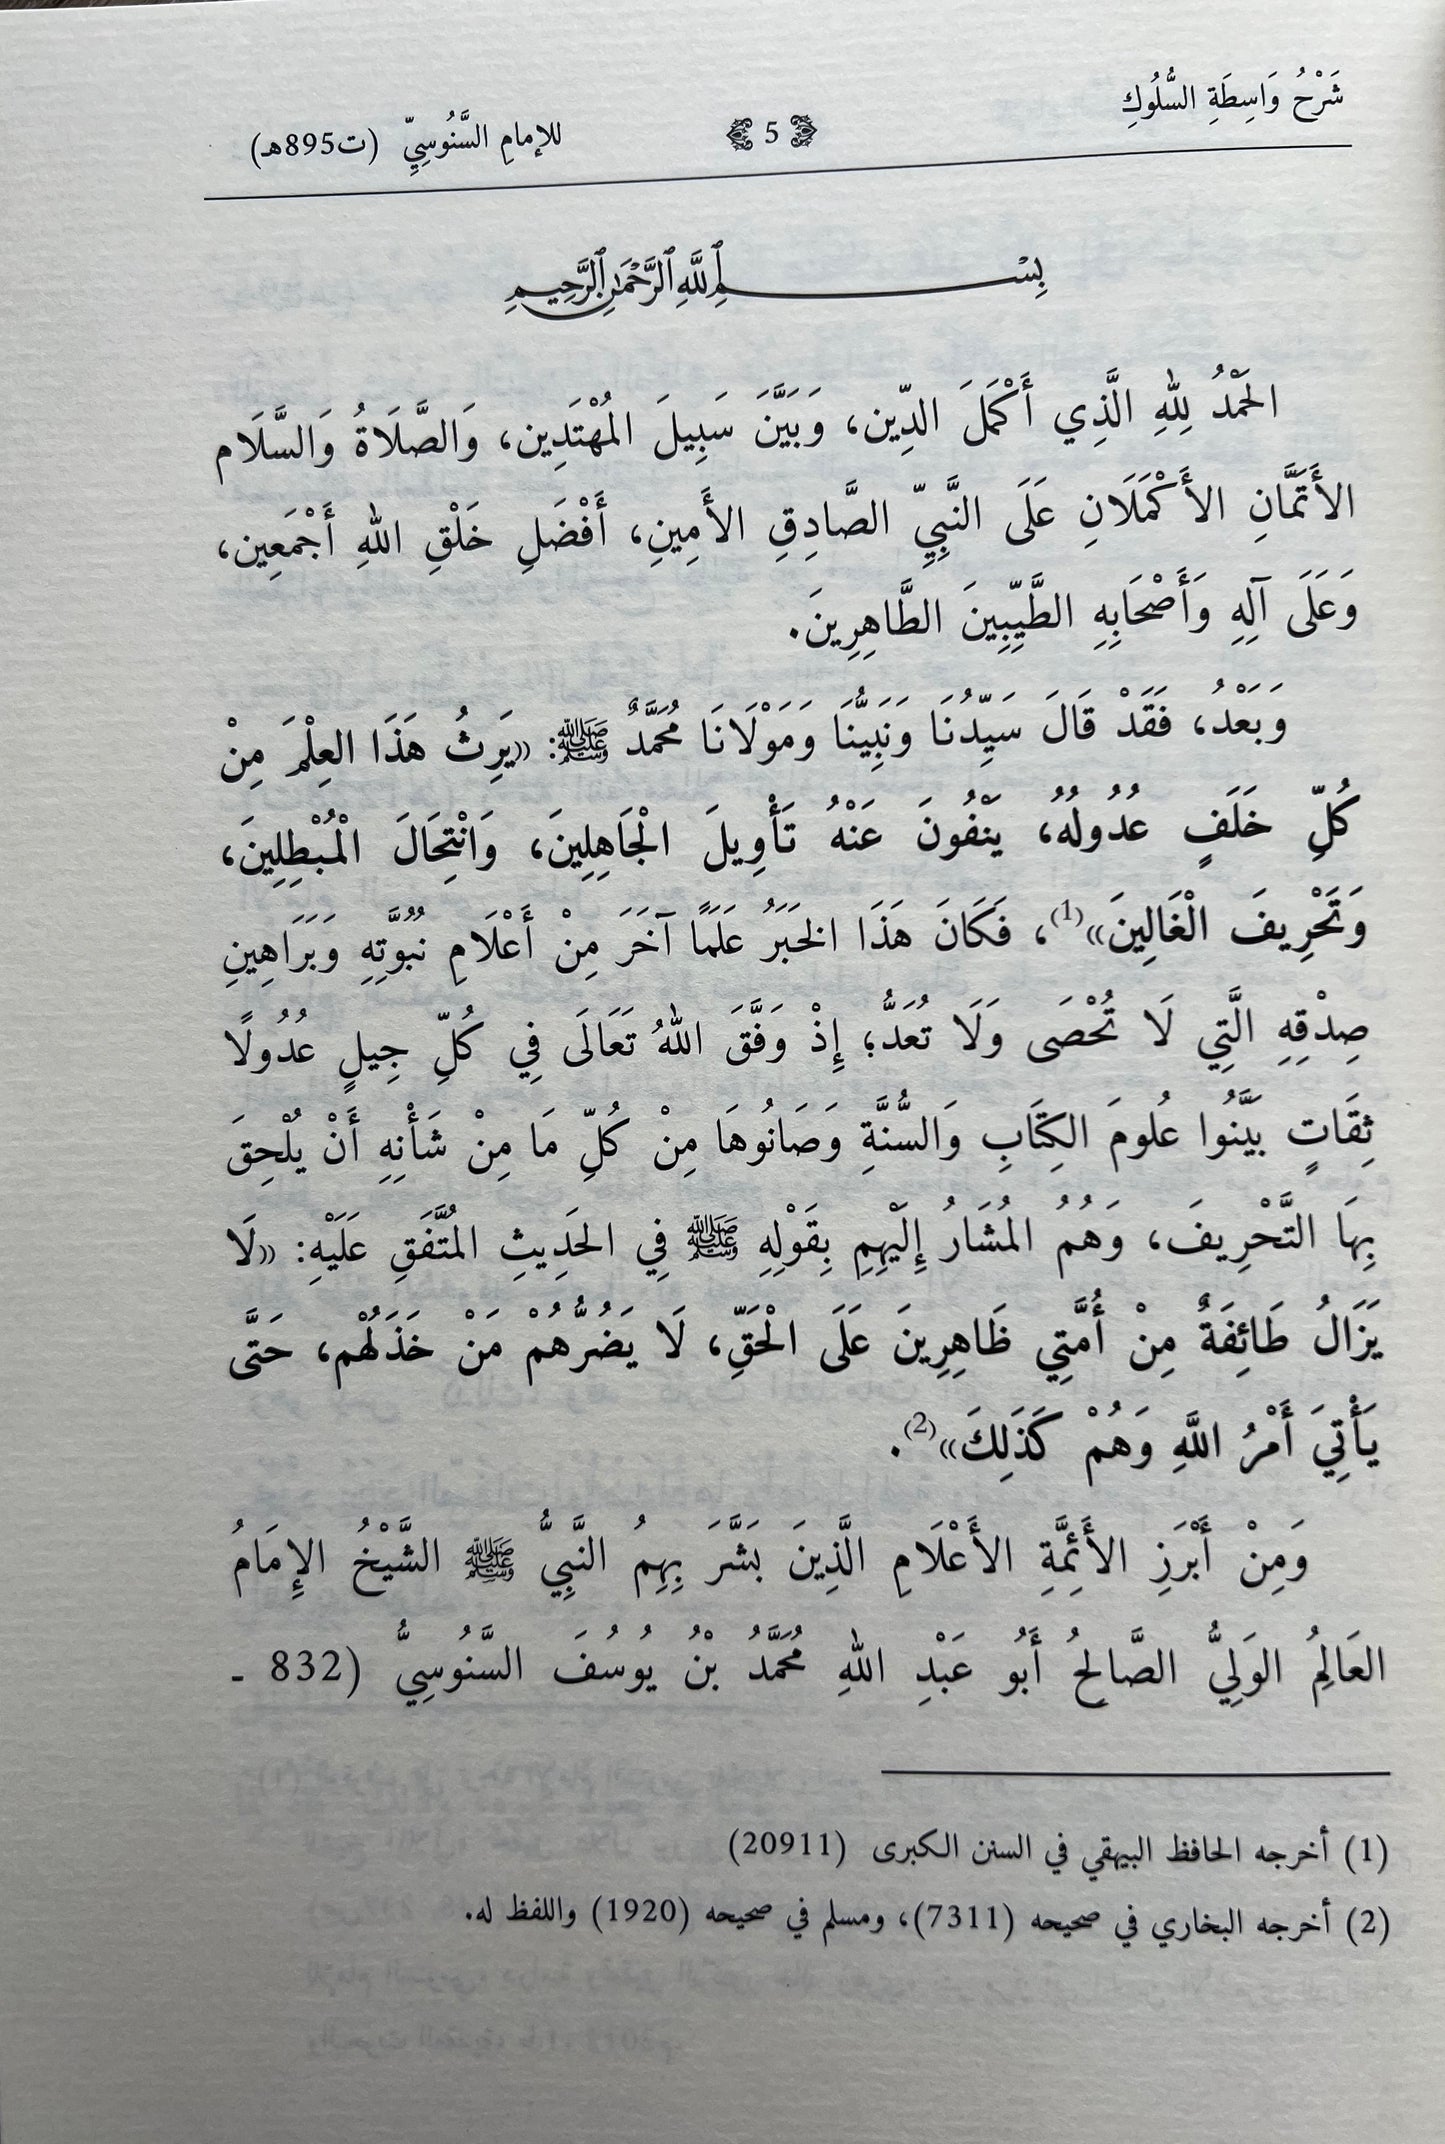 شَرْحُ وَاسِطَةِ السُّلُوكِ
5
للإمامِ السَّنُوسِيِّ (ت895هـ)
بِسْمِ ٱللَّهِ ٱلرَّحْمَٰنِ ٱلرَّحِيمِ
الحَمْدُ لِلهِ الَّذِي أَكْمَلَ الدِّين، وَبَيَّنَ سَبِيلَ المُهْتَدِين، وَالصَّلَاةُ وَالسَّلَام
الأَتَمَّانِ الأَكْمَلَانِ عَلَى النَّبِيِّ الصَّادِقِ الأَمِينِ، أَفْضَلِ خَلْقِ اللهِ أَجْمَعِين،
وَعَلَى آلِهِ وَأَصْحَابِهِ الطَّيِّبِينَ الطَّاهِرِينَ.
وَبَعْدُ، فَقَدْ قَالَ سَيِّدُنَا وَنَبِيُّنَا وَمَوْلَانَا مُحَمَّدٌ ﷺ: «يَرِثُ هَذَا العِلْمَ مِنْ
كُلِّ خَلَفٍ عُدُولُهُ، يَنْفُونَ عَنْهُ تَأْوِيلَ الْجَاهِلِينَ، وَانْتِحَالَ الْمُبْطِلِينَ،
وَتَحْرِيفَ الْغَالِينَ»(1)، فَكَانَ هَذَا الخَبَرُ عَلَمًا آخَرَ مِنْ أَعْلَامِ نُبُوَّتِهِ وَبَرَاهِينِ
صِدْقِهِ الَّتِي لَا تُحْصَى وَلَا تُعَدُّ؛ إِذْ وَفَّقَ اللهُ تَعَالَى فِي كُلِّ جِيلٍ عُدُولًا
ثِقَاتٍ بَيَّنُوا عُلُومَ الكِتَابِ وَالسُّنَّةِ وَصَانُوهَا مِنْ كُلِّ مَا مِنْ شَأْنِهِ أَنْ يُلْحِقَ
بِهَا التَّحْرِيفَ، وَهُمُ المُشَارُ إِلَيْهِمِ بِقَوْلِهِ ﷺ فِي الحَدِيثِ المُتَّفَقِ عَلَيْهِ: «لَا
يَزَالُ طَائِفَةٌ مِنْ أُمَّتِي ظَاهِرِينَ عَلَى الْحَقِّ، لَا يَضُرُّهُمْ مَنْ خَذَلَهُم، حَتَّى
يَأْتِيَ أَمْرُ اللَّهِ وَهُمْ كَذَلِكَ»(2).
وَمِنْ أَبْرَزِ الأَئِمَّةِ الأَعْلَامِ الَّذِينَ بَشَّرَ بِهِمُ النَّبِيُّ ﷺ الشَّيْخُ الإِمَامُ
العَالِمُ الوَلِيُّ الصَّالِحُ أَبُو عَبْدِ اللهِ مُحَمَّدُ بْنُ يُوسُفَ السَّنُوسِيُّ (832 ـ
(1) أخرجه الحافظ البيهقي في السنن الكبرى (20911)
(2) أخرجه البخاري في صحيحه (7311)، ومسلم في صحيحه (1920) واللفظ له.